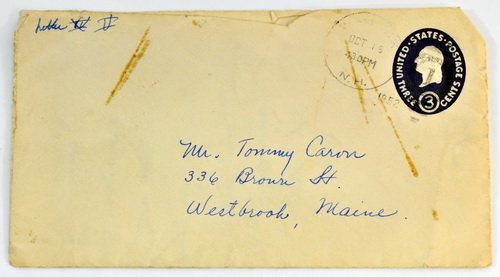 Letter V
OCT 15
430PM
N.H.
1952
UNITED·STATES·POSTAGE
THREE 3 CENTS
Mr. Tommy Caron
336 Brown St.
Westbrook, Maine.